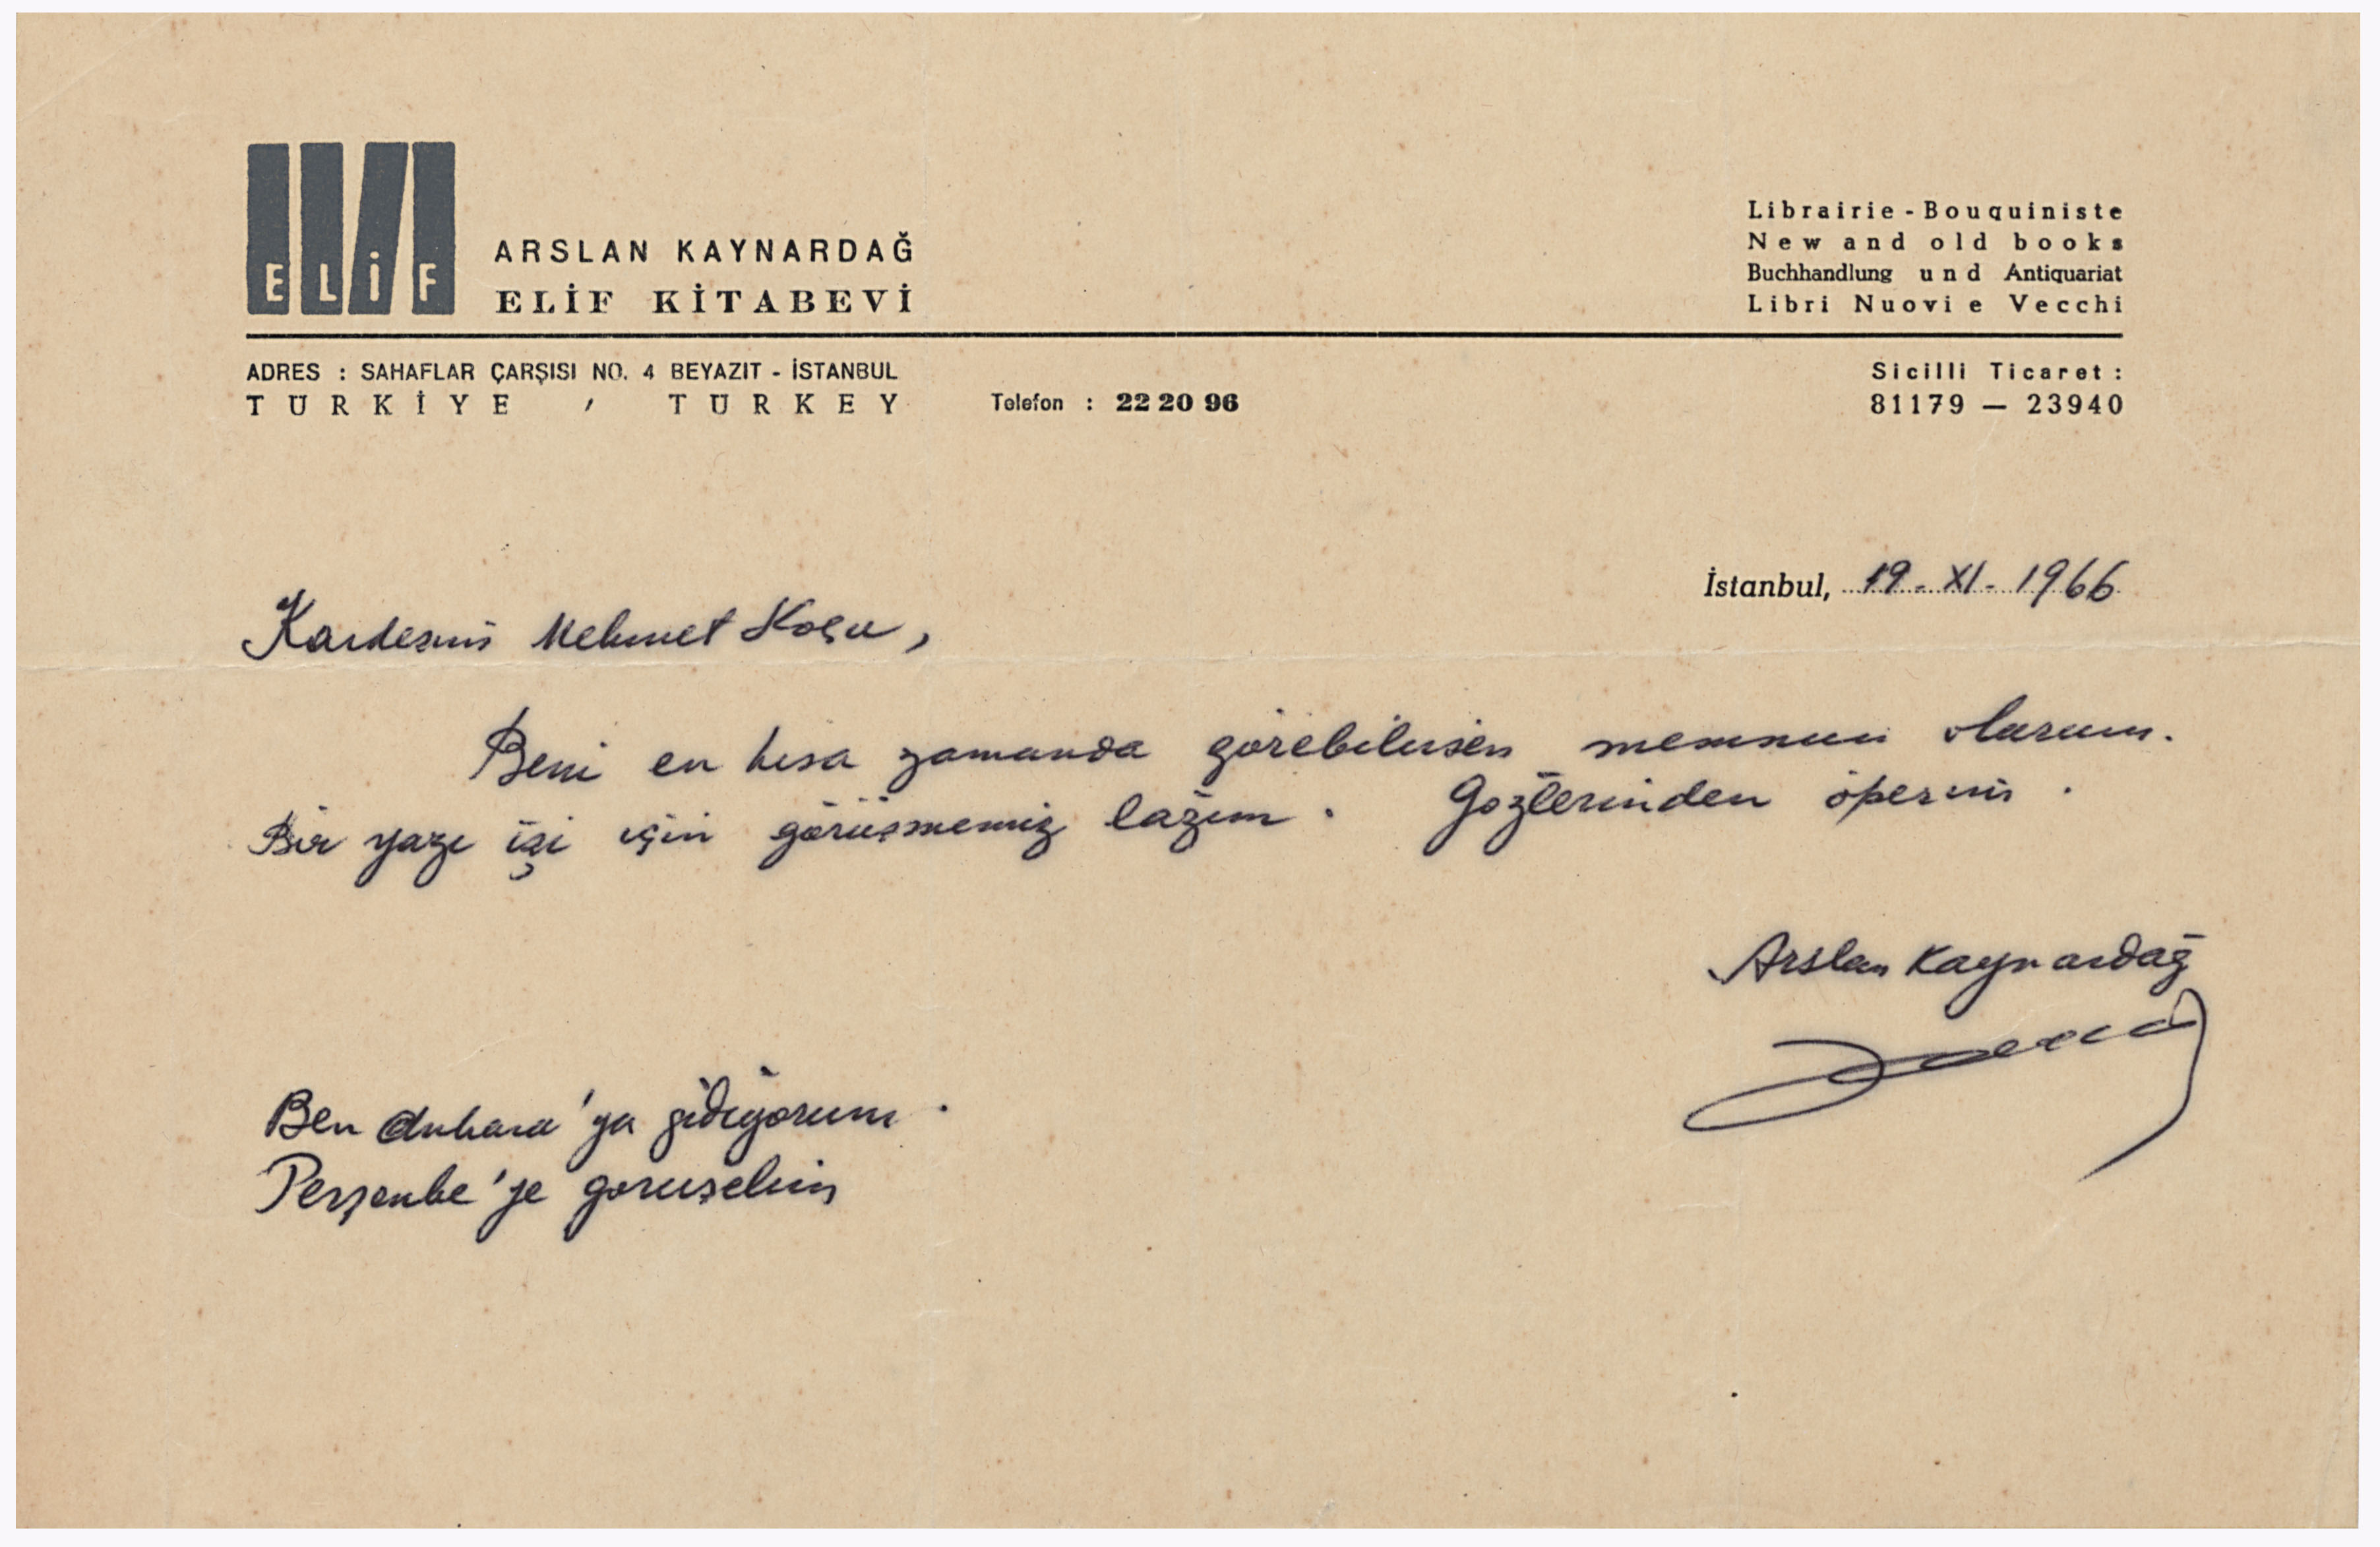 ELİF
ARSLAN KAYNARDAĞ
ELİF KİTABEVİ
Librairie - Bouquiniste
New and old books
Buchhandlung und Antiquariat
Libri Nuovi e Vecchi
ADRES : SAHAFLAR ÇARŞISI NO. 4 BEYAZIT - İSTANBUL
TÜRKİYE , TURKEY
Telefon : 22 20 96
Sicilli Ticaret :
81179 — 23940
İstanbul, 19 - XI - 1966
Kardeşim Mehmet
Beni en kısa zamanda görebilirsen memnun olurum.
Bir yazı işi için görüşmemiz lazım. Gözlerinden öperim.
Arslan Kaynardağ
Ben Ankara'ya gidiyorum.
Perşembe'ye görüşelim